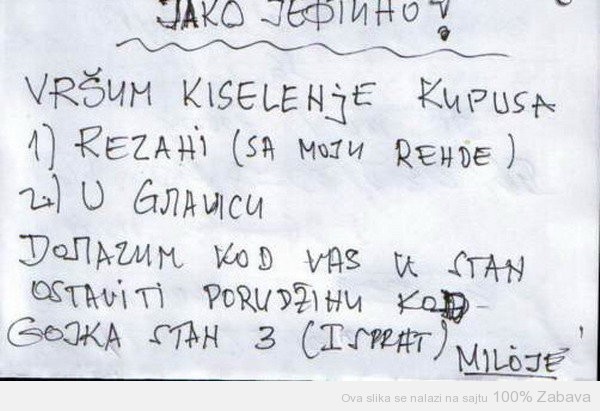 ЈАКО ЈЕФТИНО!
VRŠUM KISELENjE KUPUSA
1) REZAHI (SA MOJU REHDE)
2) U GЛАVICU
DОЛАZИМ KOD VAS U STAN
OSTAVITI PORUDŽIHU KOD
GOJKA STAN 3 (I SPRAT)
MILOJE
Ova slika se nalazi na sajtu 100% Zabava